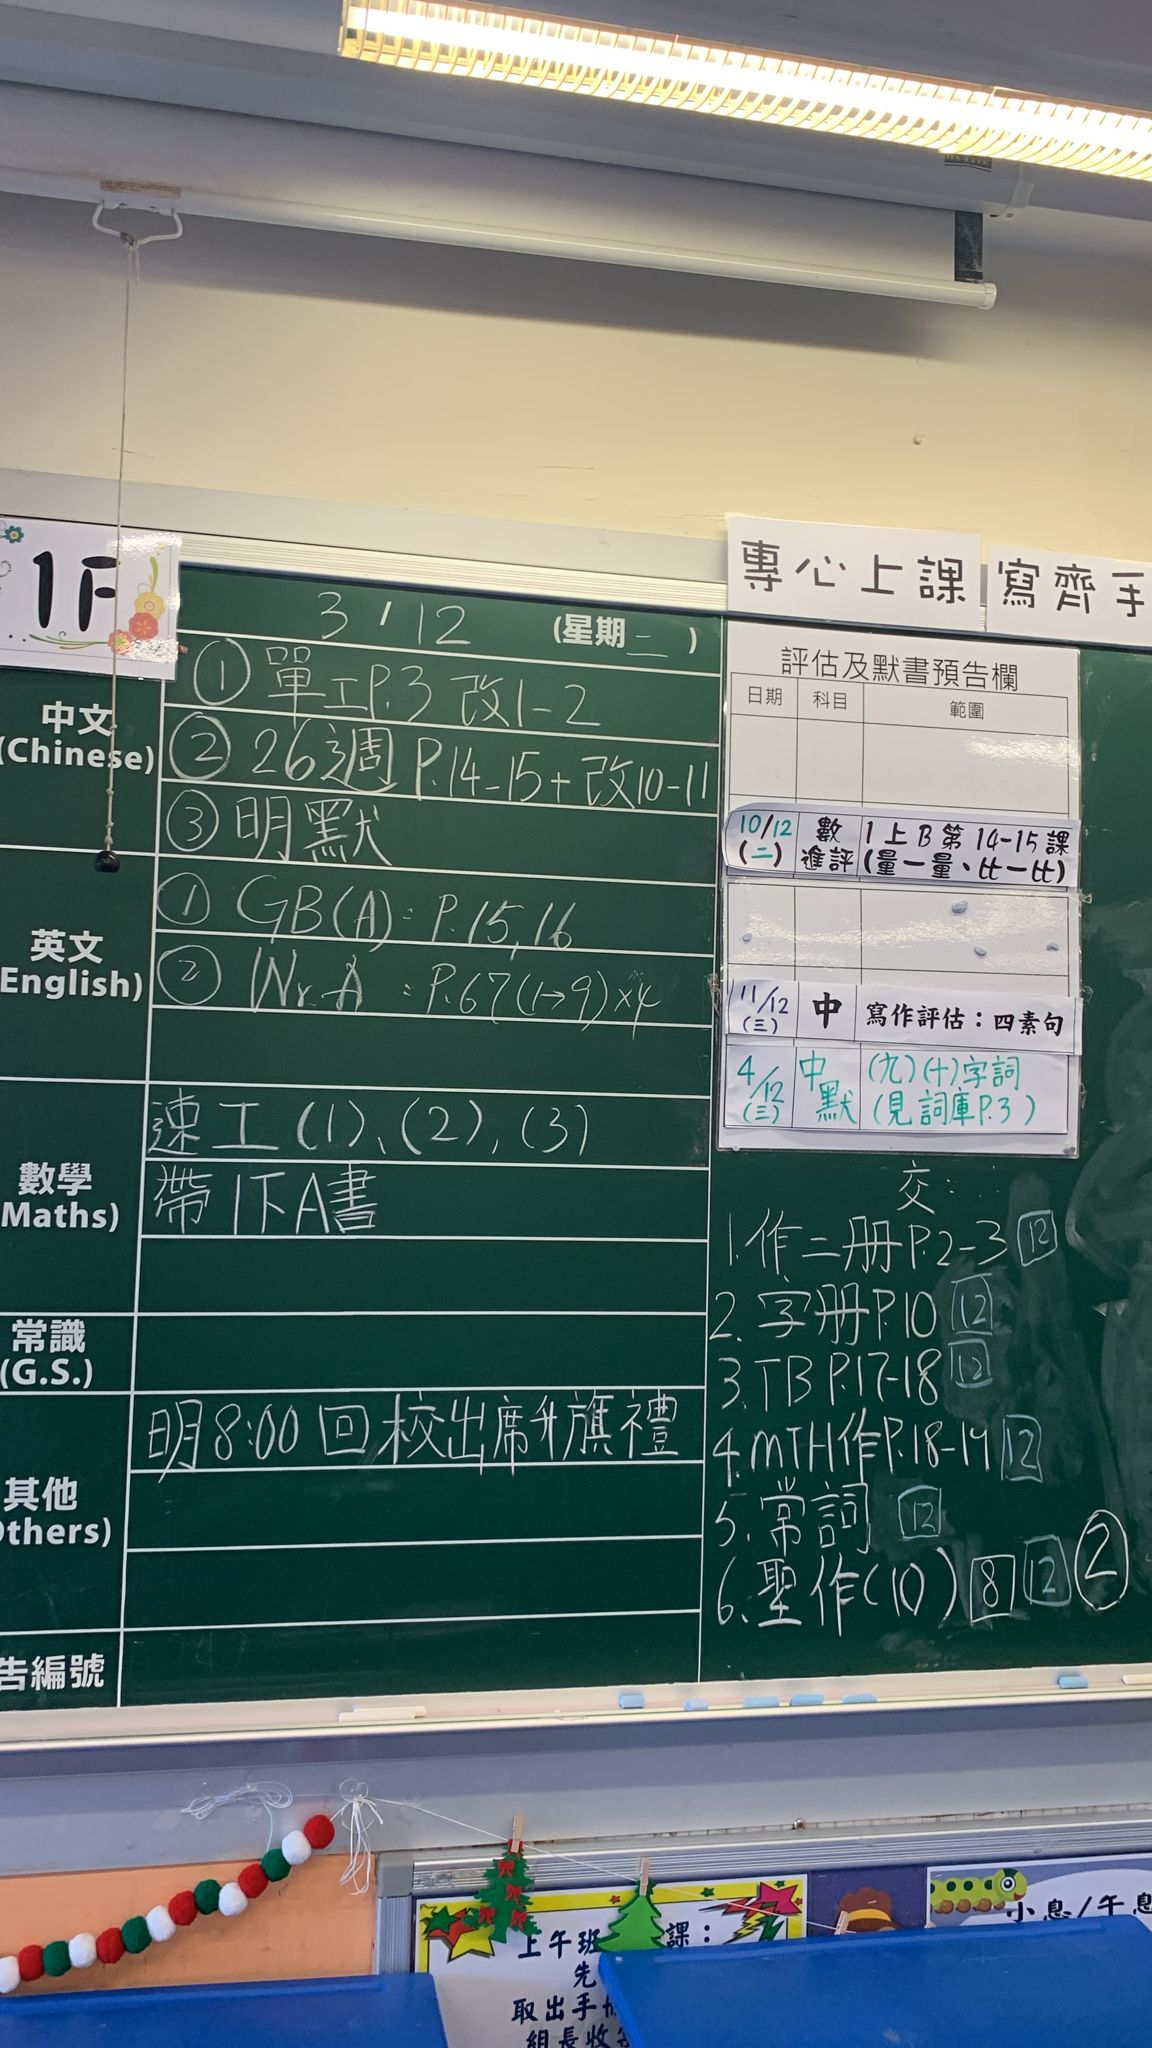 1F
3/12 (星期二)
中文
(Chinese)
① 單工P.3 改1-2
② 26週 P.14-15+改10-11
③ 明默
英文
English)
① GB(A): P.15,16
② Wr.A : P.67(1→9)×4
數學
Maths)
速工(1)、(2)、(3)
帶1下A書
常識
(G.S.)
其他
thers)
明8:00回校出席升旗禮
告編號
專心上課 寫齊手
評估及默書預告欄
日期 科目 範圍
10/12 (二) 數進評 1上B第14-15課 (量一量、比一比)
11/12 (三) 中 寫作評估：四素句
4/12 (三) 中默 (九)(十)字詞 (見詞庫P.3)
交:
1. 作二冊P.2-3 12
2. 字冊P.10 12
3. TB P.17-18 12
4. MTH作P.18-19 12
5. 常詞 12
6. 聖作(10) 8 12 ②
上午班 課：
先
取出手冊
組長收
小息/午息